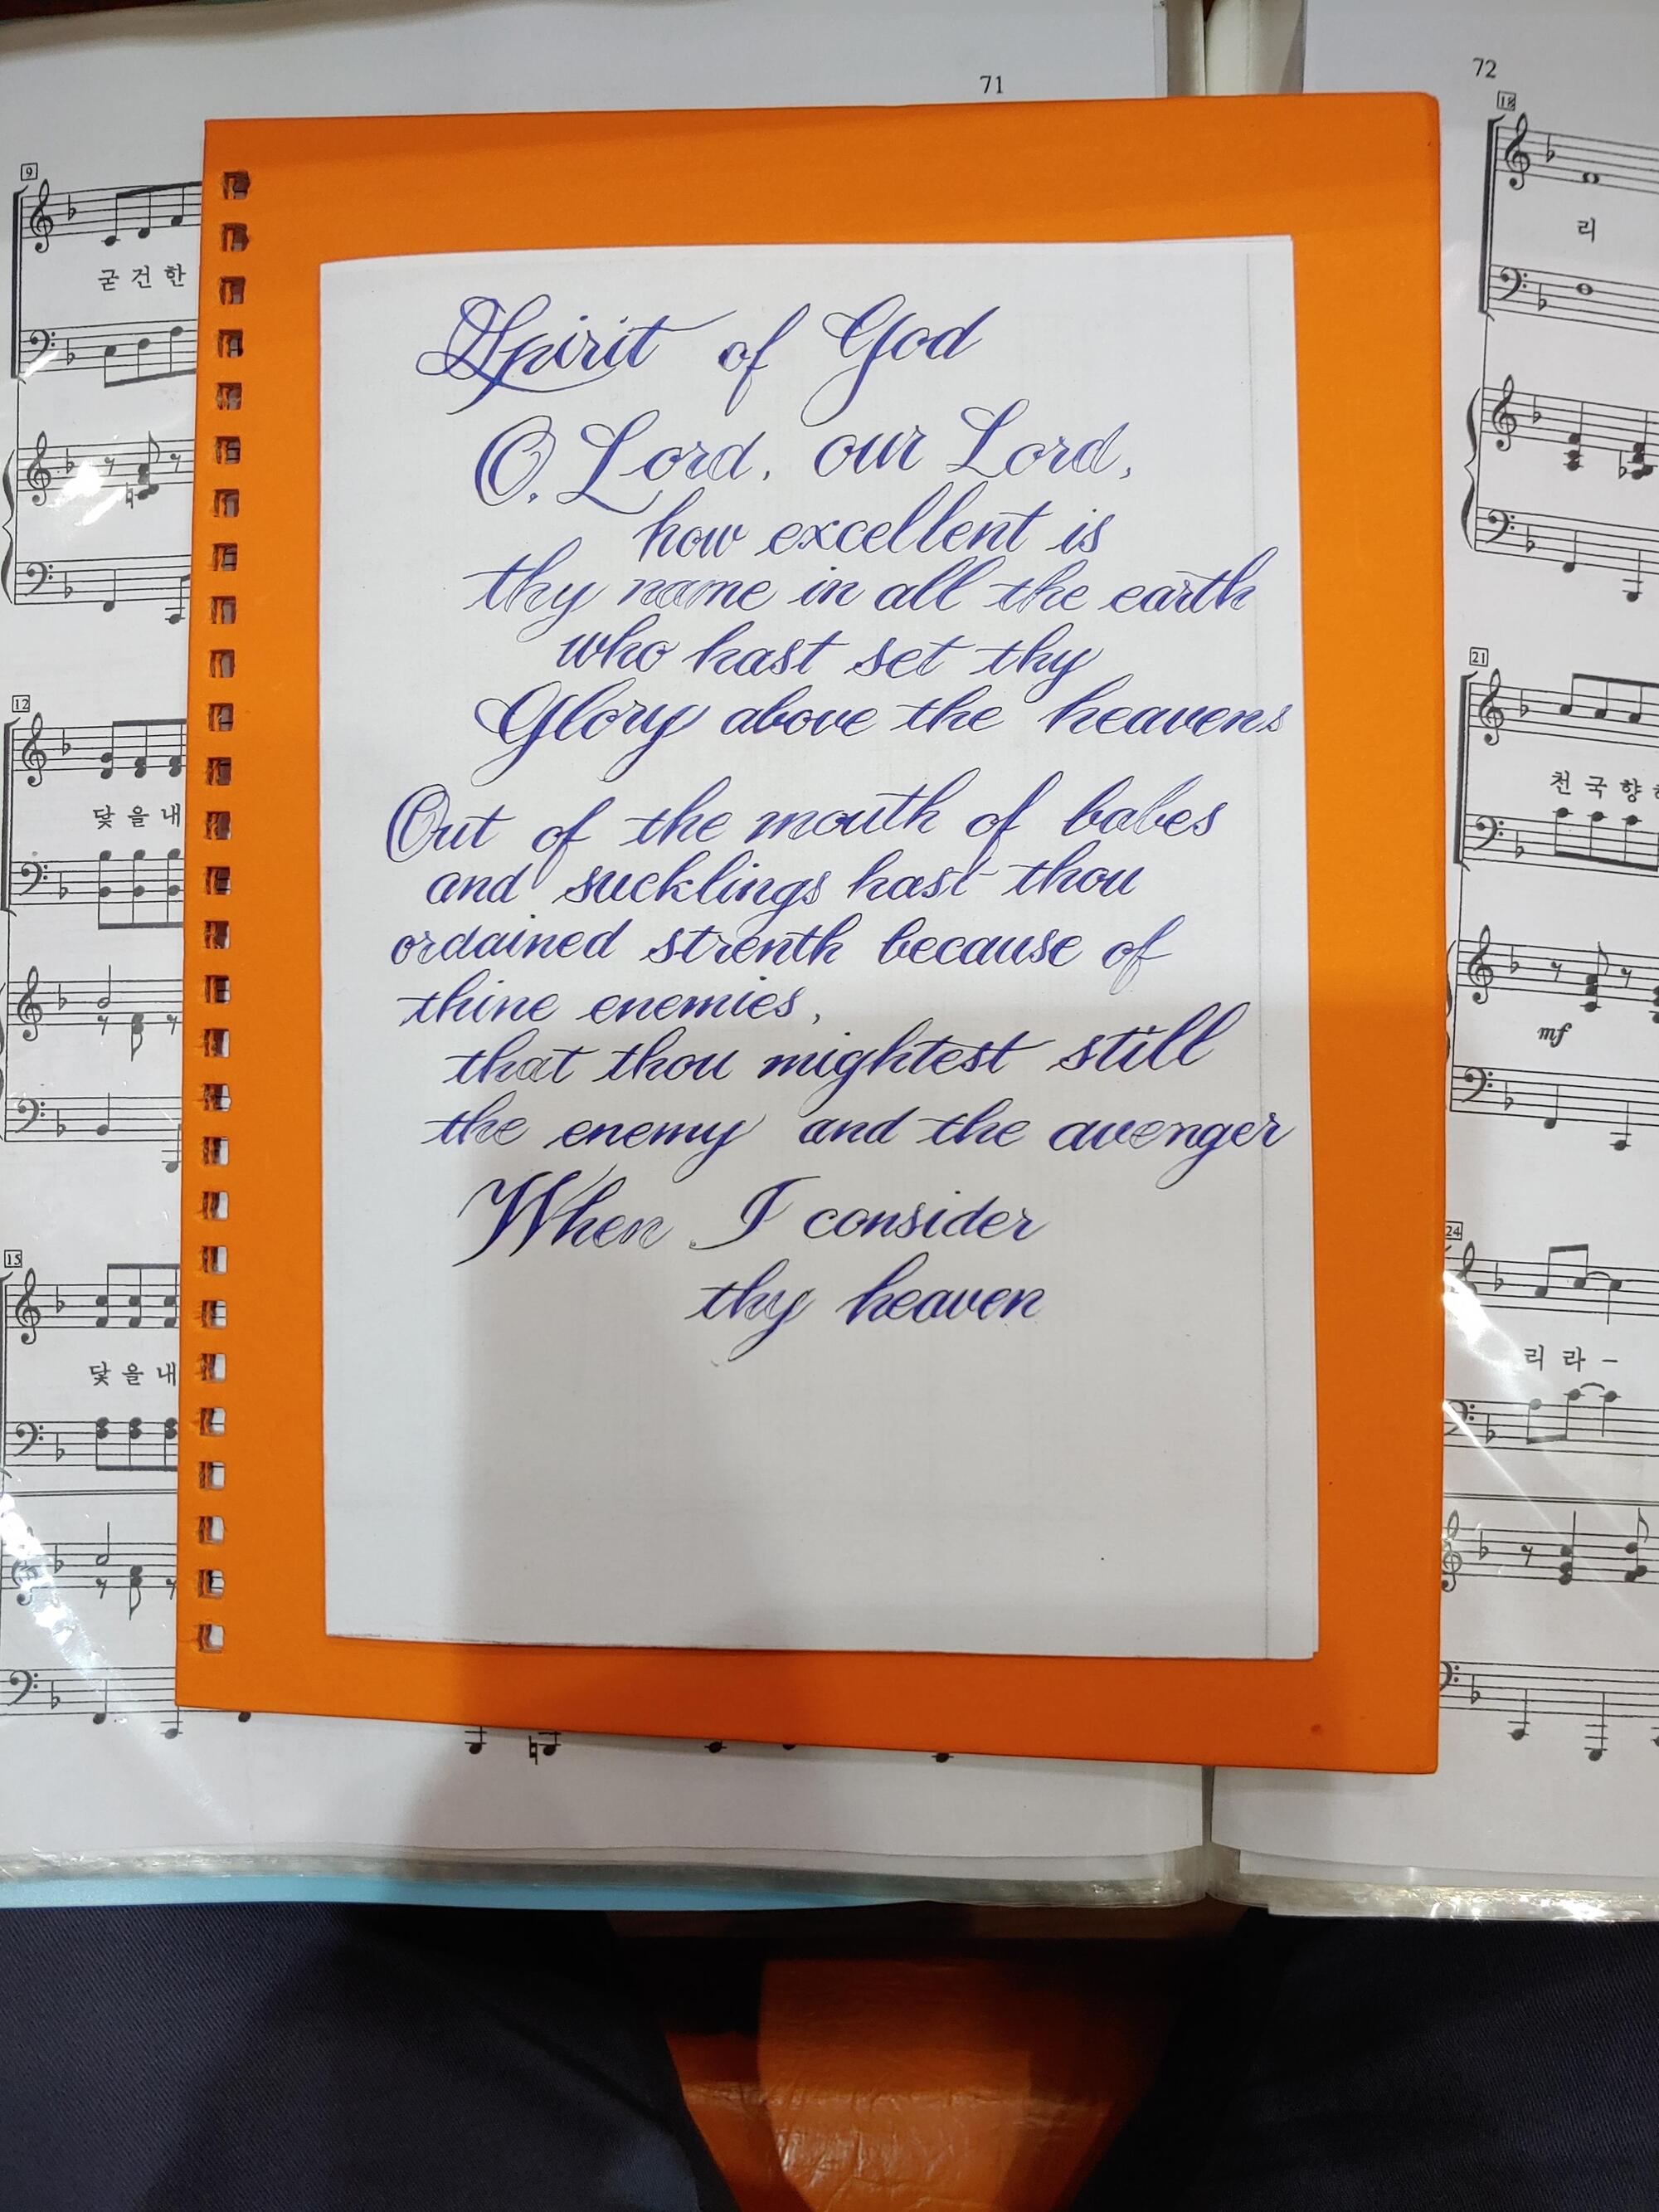 71
72
9
굳 건 한
12
닻 을 내
15
닻 을 내
Spirit of God
O. Lord, our Lord,
how excellent is
thy name in all the earth
who hast set thy
Glory above the heavens
Out of the mouth of babes
and sucklings hast thou
ordained strenth because of
thine enemies,
that thou mightest still
the enemy and the avenger
When I consider
thy heaven
18
리
21
천 국 향
mf
24
리 라 -